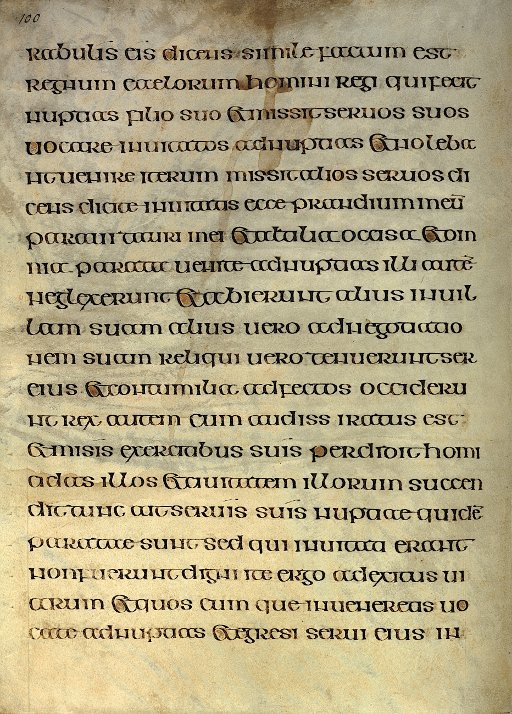 100
rabulis eis dicens simile factum est
regnum caelorum homini regi quifecit
nuptias filio suo &missitseruos suos
uocare inuitatos adnuptias &noleba
ntuenire iterum missitalios seruos di
cens dicite inuitatis ecce prandiummeū
paraui tauri mei &altilia occisa &om
nia parata uenite adnuptias illi autē
neglexerunt &abierunt alius inuil
lam suam alius uero adnegotiatio
nem suam reliqui uero tenueruntser
eius &contumilia adfectos occideru
nt rex autem cum audiss iratus est
&misis exercitibus suis perdidit homi
cidas illos &ciuitatem illorum succen
dit tunc aitseruis suis nuptiae quidē
paratae sunt sed qui inuitati erant
nonfuerunt digni ite ergo adexitus ui
arum &quos cum que inueneretis uo
cate adnuptias &egresi serui eius in